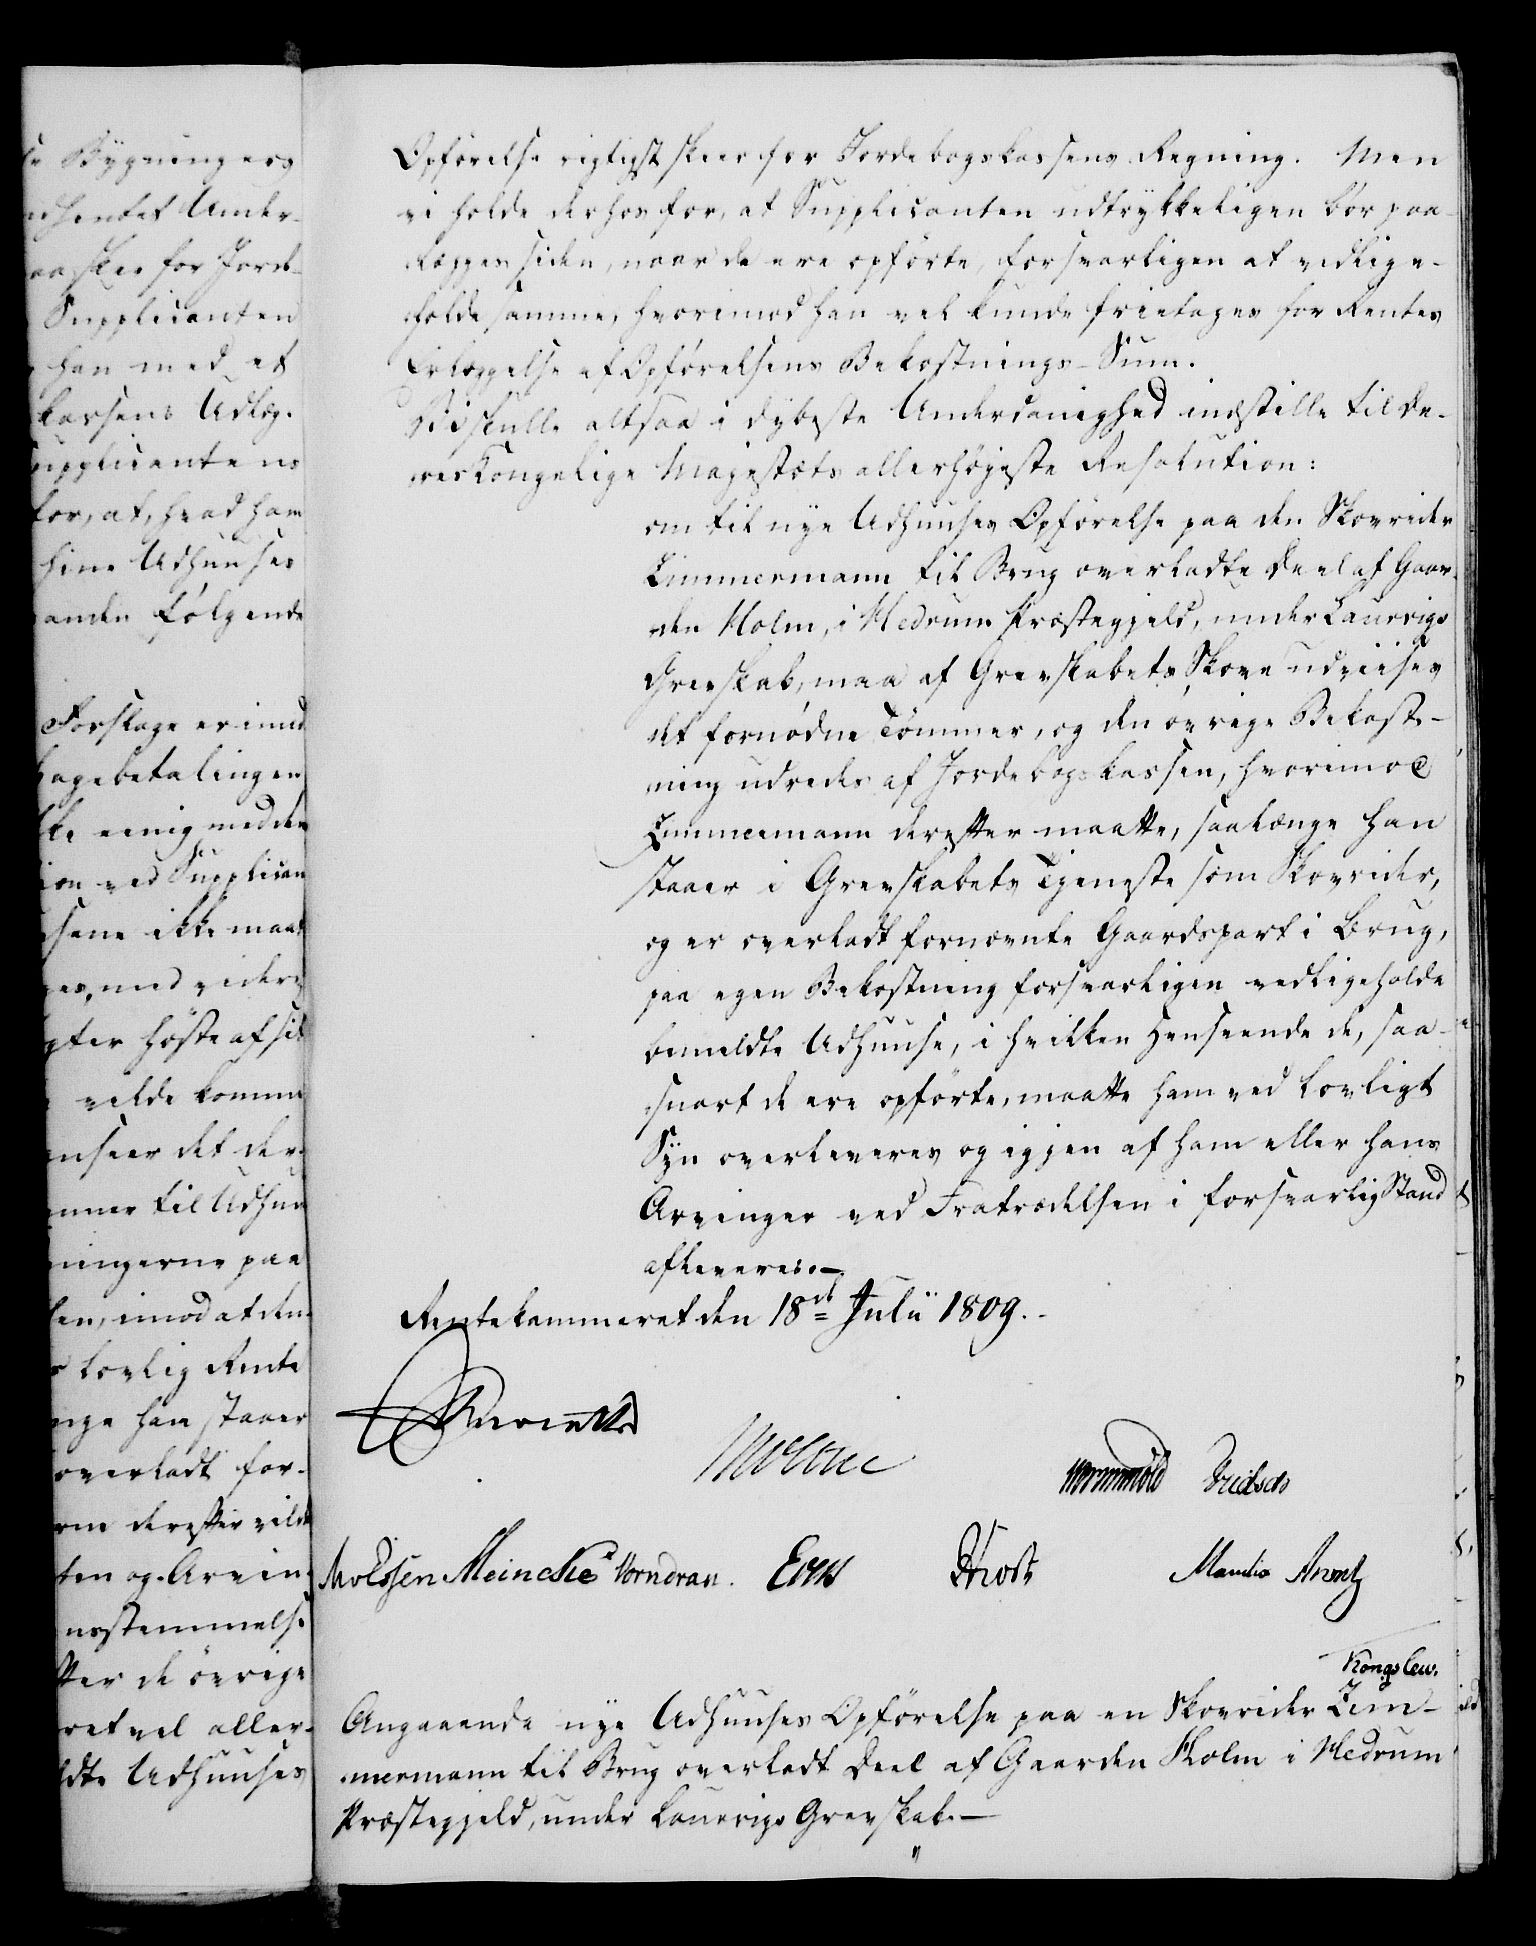 se Bygningers
ndhentet Under-
aa skee for Jorde-
Supplicanten
han med et
kassens Udlæg.
Supplicantens
for, at, hvad ham
hine Udhuuses
anden følgende
Forslage er imod
bagebetalingen
kke eenig med den
ion ved Supplican
sene ikke maat
es, med videre
gter høste af sit
vilde komme
anseer det der-
mmer til Udhuu
ningerne paa
sen, imod at den
lovlig Rente
nge han staaer
overladt for-
rne derefter vilde
ten og Arvin-
nsstemmelse
fter de övrige
ret vel aller-
ldte Udhuuses
Opförelse rigtigst skeer for Jordebogskassens Regning. Men
vi holde derhos for, at Supplicanten udtrykkeligen bör paa-
lægges siden, naar de ere opförte, forsvarligen at vedlige-
holde samme, hvorimod han vel kunde frietages for Rentes
Erlæggelse af Opförelsens Bekostnings-Sum.
Vi skulle altsaa i dybeste Underdanighed indstille til De-
res Kongelige Majestæts allerhöjeste Resolution:
om til nye Udhuuses Opförelse paa den Skovrider
Zimmermann til Brug overladte Deel af Gaar-
den Holm, i Hedrum Præstegjeld, under Laurvigs
Grevskab, maa af Grevskabets Skove udviises
det fornödne Tömmer, og den övrige Bekost-
ning udredes af Jordebogskassen, hvorimod
Zimmermann derefter maatte, saalænge han
staaer i Grevskabets Tjeneste som Skovrider,
og er overladt fornævnte Gaardspart i Brug,
paa egen Bekostning forsvarligen vedligeholde
bemeldte Udhuuse, i hvilken Henseende de, saa-
snart de ere opförte, maatte ham ved lovligt
Syn overleveres og igjen af ham eller hans
Arvinger ved Fratrædelsen i forsvarlig Stand
afleveres.—
Rentekammeret den 18de Julii 1809.
Reventlow
Moltke
Wormskiold
Meincke Vorndran.
Knoph
Manthey
Kongslew.
Angaaende nye Udhuuses Opförelse paa en Skovrider Zim-
mermann til Brug overladt Deel af Gaarden Holm i Hedrum
Præstegjeld, under Laurvigs Grevskab.—